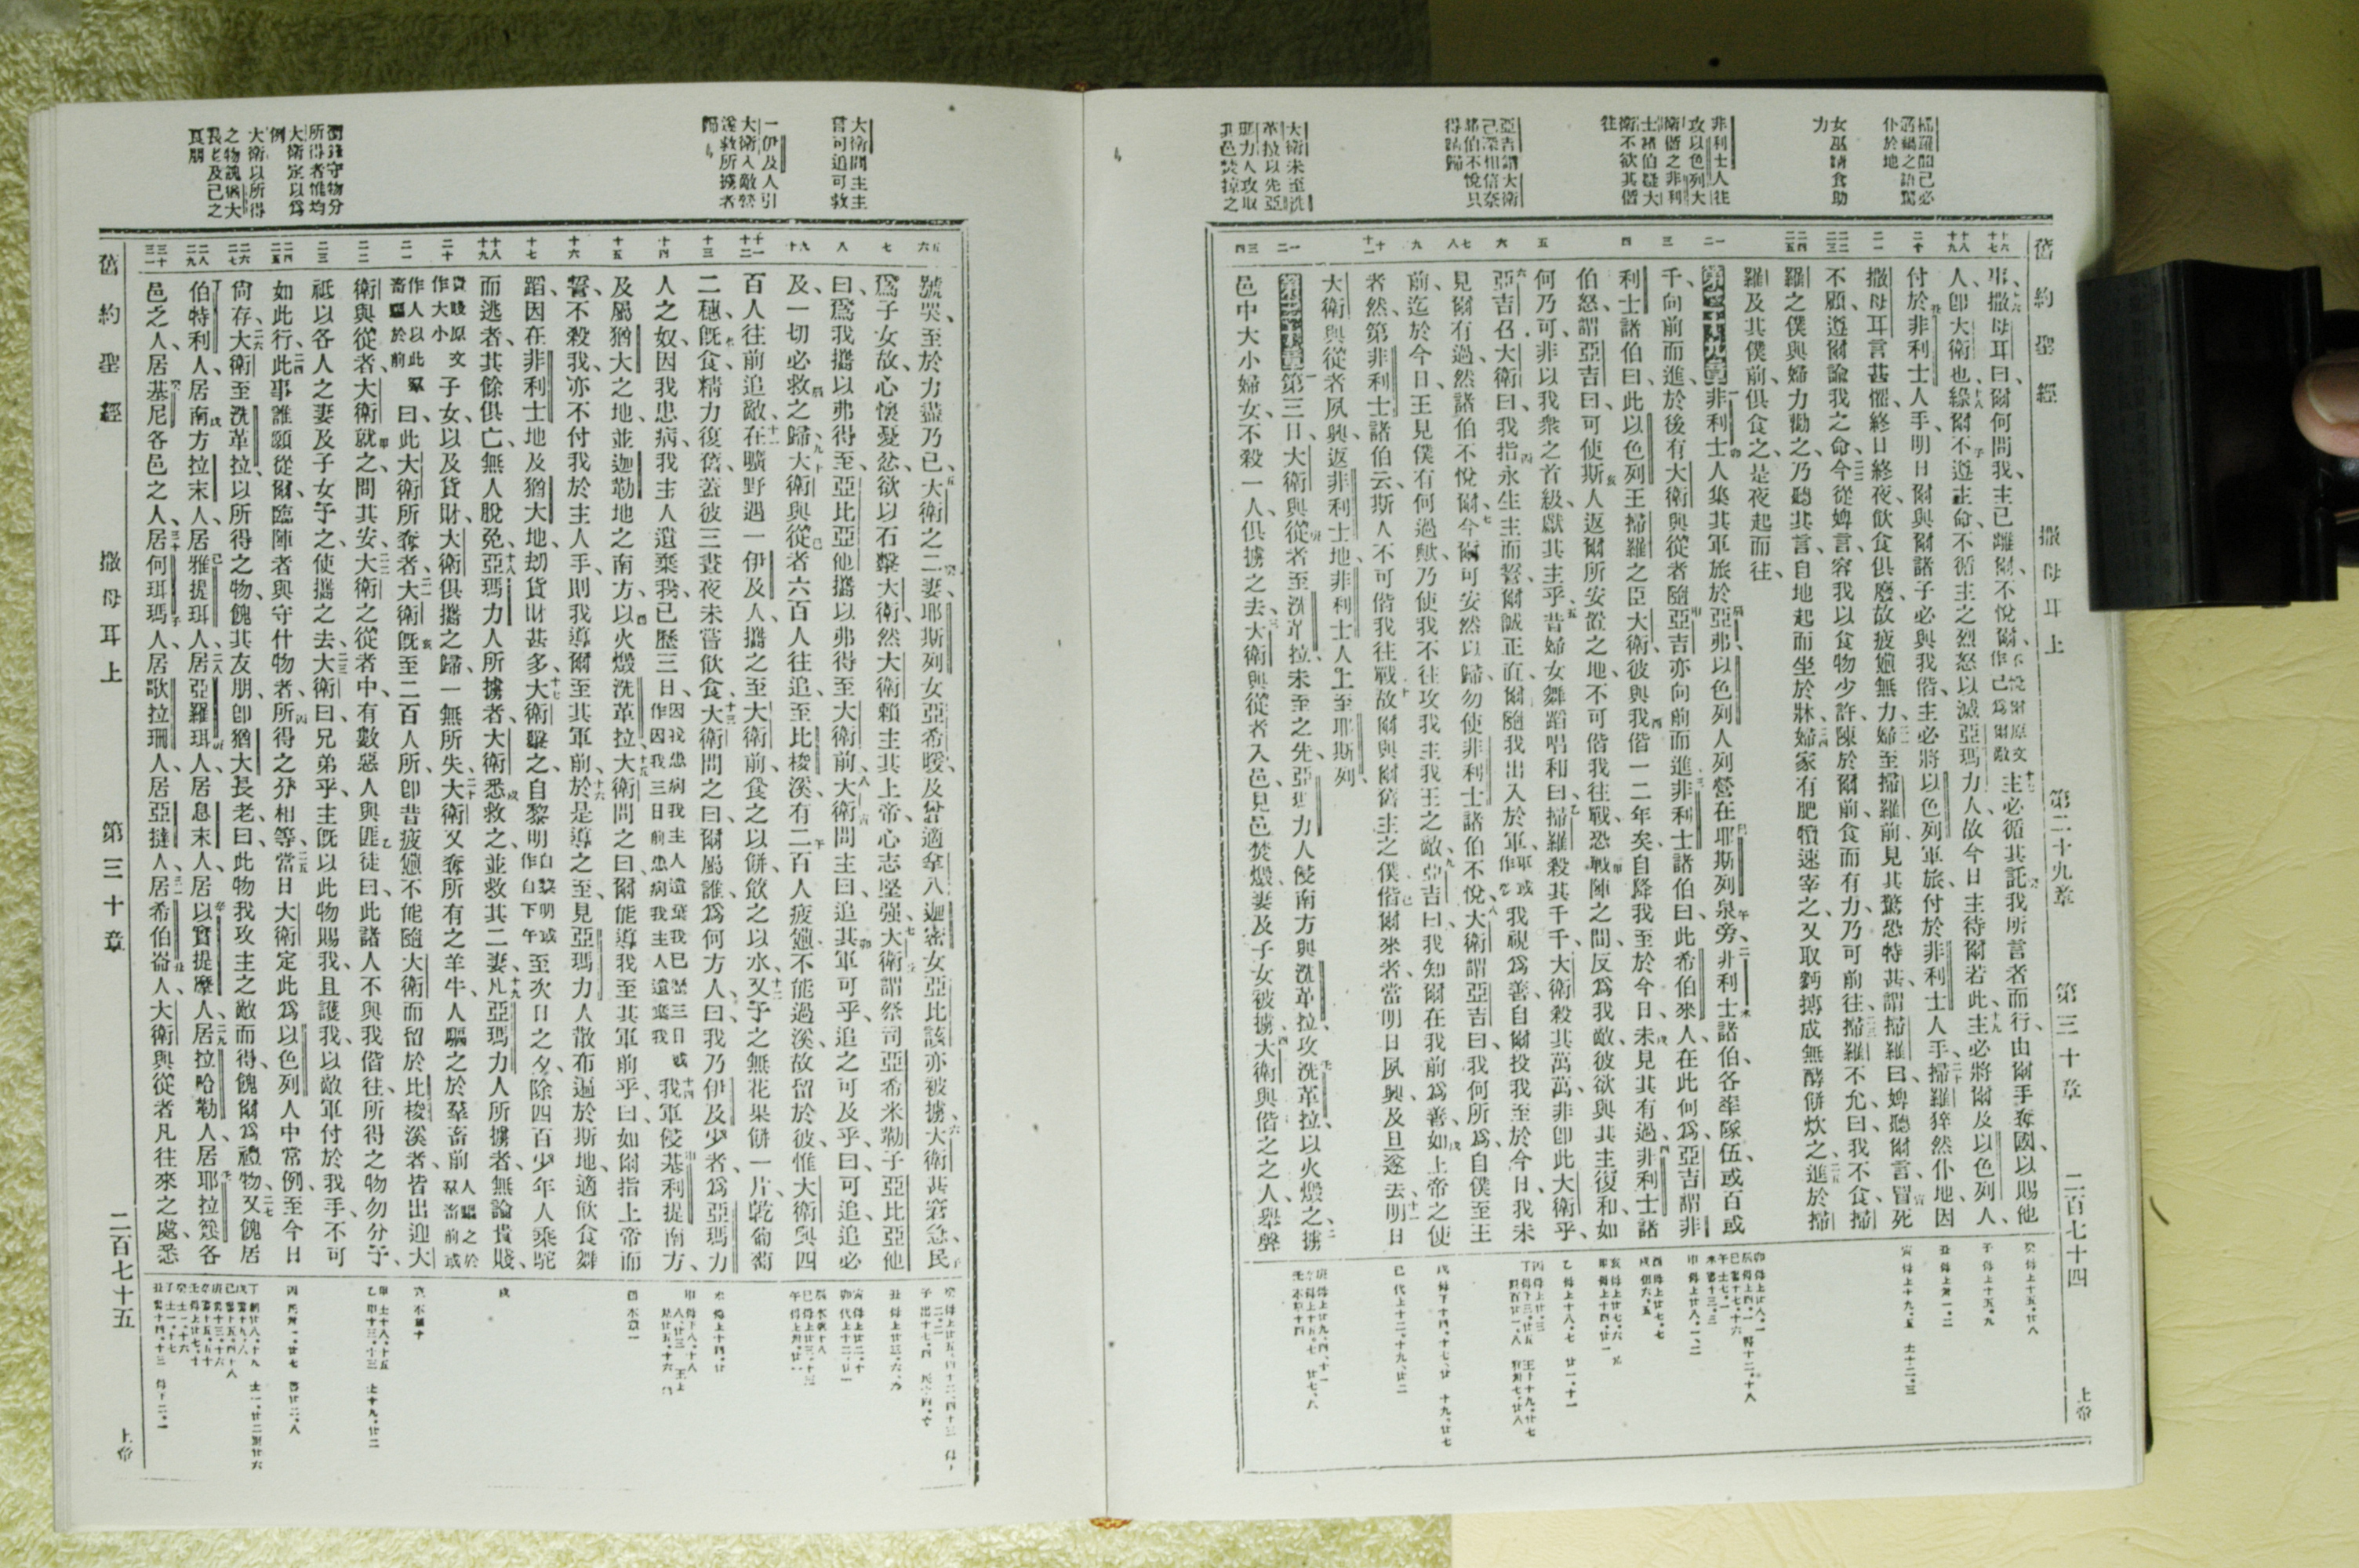 舊約聖經 撒母耳上 第二十九章 第三十章 二百七十四 上帝
掃羅聞己必
仆於地
女巫請食助
力
非利士人往
攻以色列大
衛偕之非利
士諸伯疑大
衛不欲其偕
往
亞吉謂大衛
己深相信奈
諸伯不悅只
得請歸
大衛未至洗
革拉以先亞
瑪力人攻取
其邑焚掠之
事、撒母耳曰、爾何問我、主已離爾、不悅爾、不悅爾原文作已爲爾敵主必循其託我所言者而行、由爾手奪國、以賜他
人、卽大衛也、緣爾不遵主命、不循主之烈怒以滅亞瑪力人、故今日主待爾若此、主必將爾及以色列人、
付於非利士人手、明日爾與爾諸子必與我偕、主必將以色列軍旅、付於非利士人手、掃羅猝然仆地、因
撒母耳言甚懼、終日終夜、飲食俱廢、故疲憊無力、婦至掃羅前、見其驚恐特甚、謂掃羅曰、婢聽爾言、冒死
不顧、遵爾諭我之命、今從婢言、容我以食物少許、陳於爾前、食而有力、乃可前往、掃羅不允、曰、我不食、掃
羅之僕與婦力勸之、乃聽其言、自地起而坐於牀、婦家有肥犢、速宰之、又取麪摶成無酵餅炊之、進於掃
羅及其僕前、俱食之、是夜起而往、
第二十九章 非利士人集其軍旅於亞弗、以色列人列營在耶斯列泉旁、非利士諸伯、各率隊伍、或百或
千、向前而進、於後有大衛與從者隨亞吉亦向前而進、非利士諸伯曰、此希伯來人、在此何爲、亞吉謂非
利士諸伯曰、此以色列王掃羅之臣大衛、彼與我偕一二年矣、自降我至於今日、未見其有過、非利士諸
伯怒、謂亞吉曰、可使斯人返爾所安置之地、不可偕我往戰、恐戰陣之間、反爲我敵、彼欲與其主復和、如
何乃可、非以我衆之首級獻其主乎、昔婦女舞蹈唱和曰、掃羅殺其千千、大衛殺其萬萬、非卽此大衛乎、
亞吉召大衛曰、我指永生主而誓、爾誠正直、爾隨我出入於軍、軍或作營我視爲善、自爾投我至於今日、我未
見爾有過、然諸伯不悅爾、今爾可安然以歸、勿使非利士諸伯不悅、大衛謂亞吉曰、我何所爲、自僕至王
前、迄於今日、王見僕有何過歟、乃使我不往攻我主我王之敵、亞吉曰、我知爾在我前爲善、如上帝之使
者然、第非利士諸伯云、斯人不可偕我往戰、故爾與爾舊主之僕偕爾來者、當明日夙興、及旦遂去、明日
大衛與從者夙興、返非利士地、非利士人上至耶斯列、
第三十章 第三日、大衛與從者至洗革拉、未至之先、亞瑪力人侵南方與洗革拉、攻洗革拉、以火燬之、擄
邑中大小婦女、不殺一人、俱擄之去、大衛與從者入邑、見邑焚燬、妻及子女被擄、大衛與偕之之人、舉聲
大衛問主主
言可追可救
一伊及人引
大衛入敵營
遂救所擄者
歸
守物分
所得者惟均
大衛定以爲
例
大衛以所得
之物餽猶大
長老及己之
良朋
號哭、至於力盡乃已、大衛之二妻、耶斯列女亞希暖、及曾適拿八迦密女亞比該亦被擄、大衛甚窘急、民
爲子女故、心懷憂忿、欲以石擊大衛、然大衛賴主其上帝、心志堅强、大衛謂祭司亞希米勒子亞比亞他
曰、爲我攜以弗得至、亞比亞他攜以弗得至大衛前、大衛問主曰、追其軍可乎、追之可及乎、曰、可追、追必
及、一切必救之歸、大衛與從者六百人往追、至比梭溪、有二百人疲憊、不能過溪、故留於彼、惟大衛與四
百人往前追敵、在曠野遇一伊及人、攜之至大衛前、食之以餅、飲之以水、又予之無花果餅一片、乾葡萄
二穗、旣食、精力復舊、蓋彼三晝夜未嘗飲食、大衛問之曰、爾屬誰、爲何方人、曰、我乃伊及少者、爲亞瑪力
人之奴、因我患病、我主人遺棄我、已歷三日、因我患病我主人遺棄我已歷三日或作因我三日前患病我主人遺棄我我軍侵基利提南方、
及屬猶大之地、並迦勒地之南方、以火燬洗革拉、大衛問之曰、爾能導我至其軍前乎、曰、如爾指上帝而
誓、不殺我、亦不付我於主人手、則我導爾至其軍前、於是導之至、見亞瑪力人散布遍於斯地、適飲食舞
蹈、因在非利士地及猶大地、刧貨財甚多、大衛擊之、自黎明自黎明或作自下午至次日之夕、除四百少年人乘駝
而逃者、其餘俱亡、無人脫免、亞瑪力人所擄者、大衛悉救之、並救其二妻、凡亞瑪力人所擄者、無論貴賤、
貴賤原文作大小子女、以及貨財、大衛俱攜之歸、一無所失、大衛又奪所有之羊牛、人驅之於羣畜前人驅之於羣畜前或
作人以此羣畜驅於前曰、此大衛所奪者、大衛旣至二百人所、卽昔疲憊不能隨大衛而留於比梭溪者、皆出迎大
衛與從者、大衛就之、問其安、大衛之從者中、有數惡人與匪徒曰、此諸人不與我偕往、所得之物勿分予、
祇以各人之妻及子女予之、使攜之去、大衛曰、兄弟乎、主旣以此物賜我、且護我、以敵軍付於我手、不可
如此行、此事誰願從爾、臨陣者與守什物者、所得之分相等、當日大衛定此爲以色列人中常例、至今日
尙存、大衛至洗革拉、以所得之物、餽其友朋、卽猶大長老、曰、此物我攻主之敵而得、餽爾爲禮物、又餽居
伯特利人、居南方拉末人、居雅提珥人、居亞羅珥人、居息末人、居以實提摩人、居拉哈勒人、居耶拉篾各
邑之人、居基尼各邑之人、居何珥瑪人、居歌拉珊人、居亞撻人、居希伯崙人、大衛與從者凡往來之處、悉
舊約聖經 撒母耳上 第三十章 二百七十五 上帝